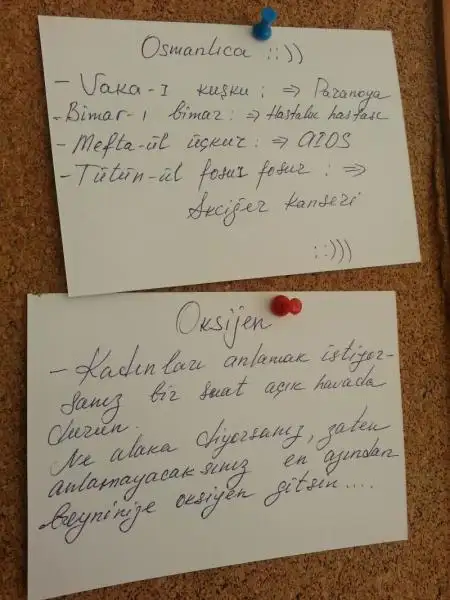 Osmanlıca ::))
- Vaka-ı kuşku : => Paranoya
- Bimar-ı bimar : => Hastalık hastası
- Mefta-ül uçkur : => AIDS
- Tütün-ül fosur fosur : =>
Akciğer kanseri
::)))
Oksijen
- Kadınları anlamak istiyor-
sanız bir saat açık havada
durun.
Ne alaka diyorsanız, zaten
anlamayacaksınız en azından
beyninize oksijen gitsin....